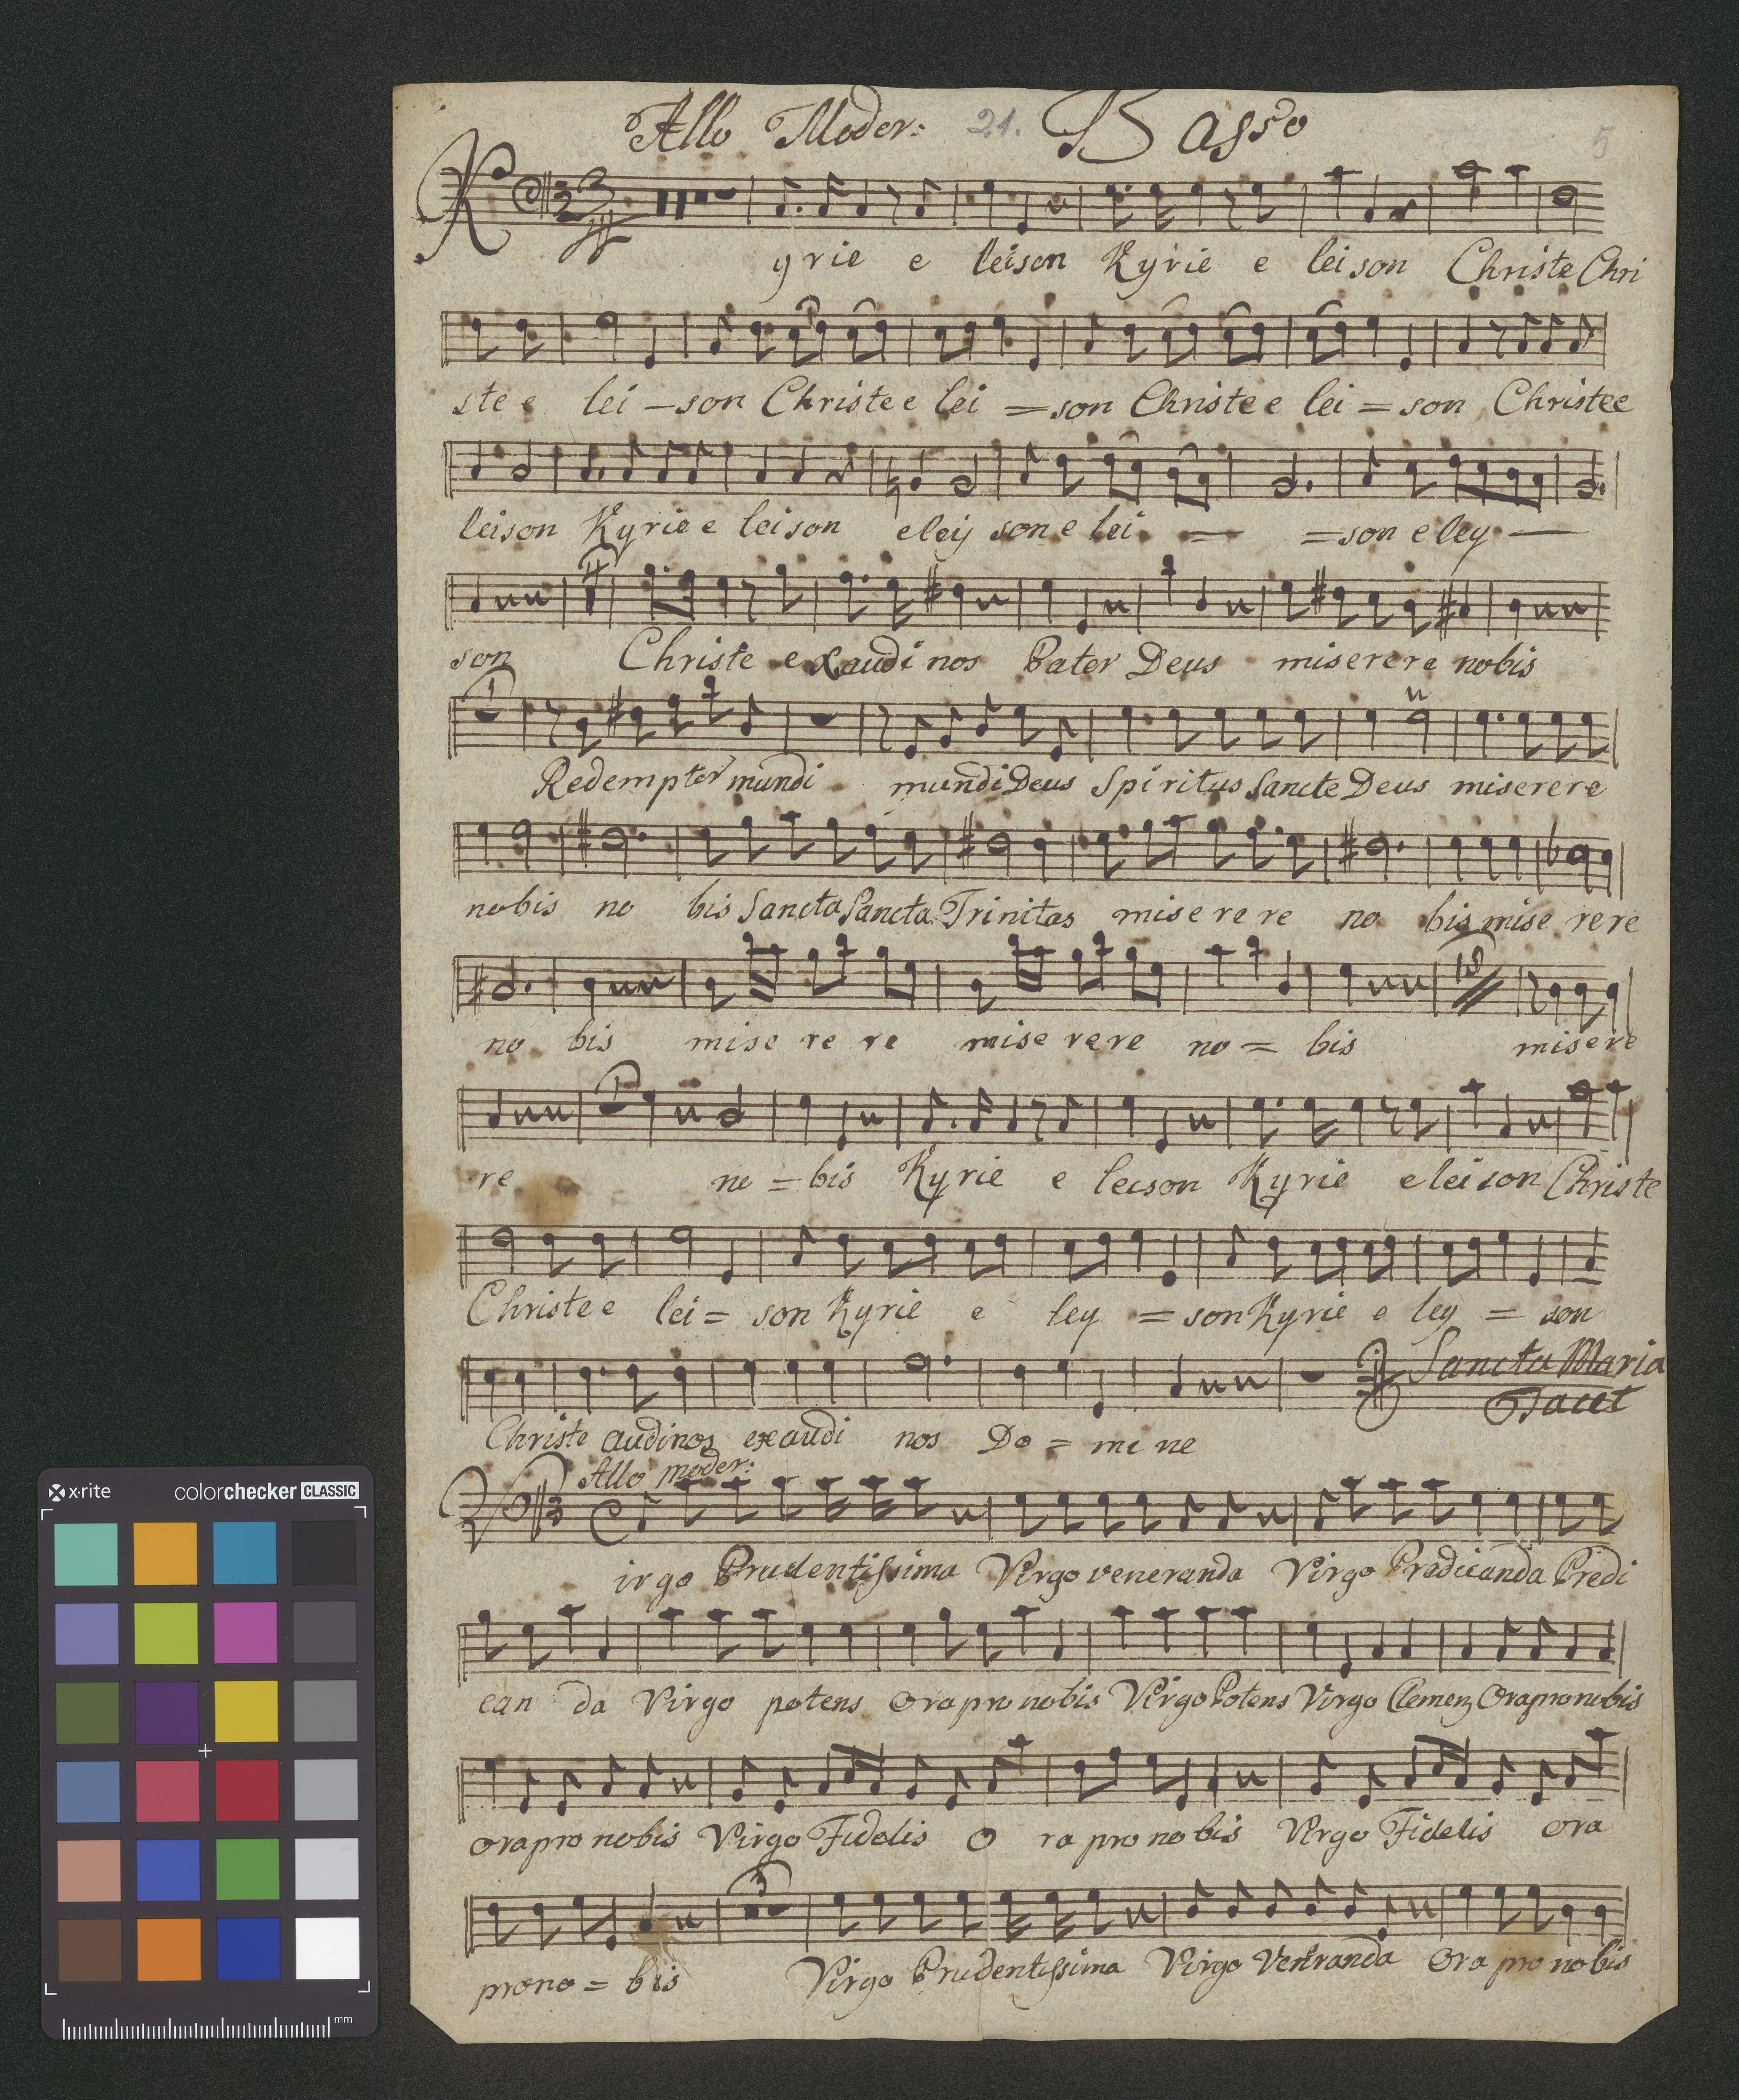 Allo Moder: 21. Basso
5
K
yrie e leison Kyrie e leison Christe Chri
ste e lei - son Christe e lei = son Christe e lei = son Christe e
leison Kyrie e leison eleij son e lei = = son e ley —
son Christe exaudi nos Pater Deus miserere nobis
1
Redemptor mundi mundi Deus Spiritus Sancte Deus miserere
nobis no bis Sancta Sancta Trinitas mise re re no bis mise rere
no bis mise re re mise rere no = bis misere
1
re no = bis Kyrie e leison Kyrie eleison Christe
Christe e lei = son Kyrie e ley = son Kyrie e ley = son
Sancta Maria
Tacet
Christe audi nos exaudi nos Do = mi ne
Allo moder:
V
irgo Prudentissima Virgo veneranda Virgo Predicanda Predi
can da Virgo potens ora pro nobis Virgo Potens Virgo Clemenz Ora pro nobis
ora pro nobis Virgo Fidelis O ra pro no bis Virgo Fidelis ora
3
pro no = bis Virgo Prudentissima Virgo Veneranda Ora pro nobis
x·rite colorchecker CLASSIC
mm